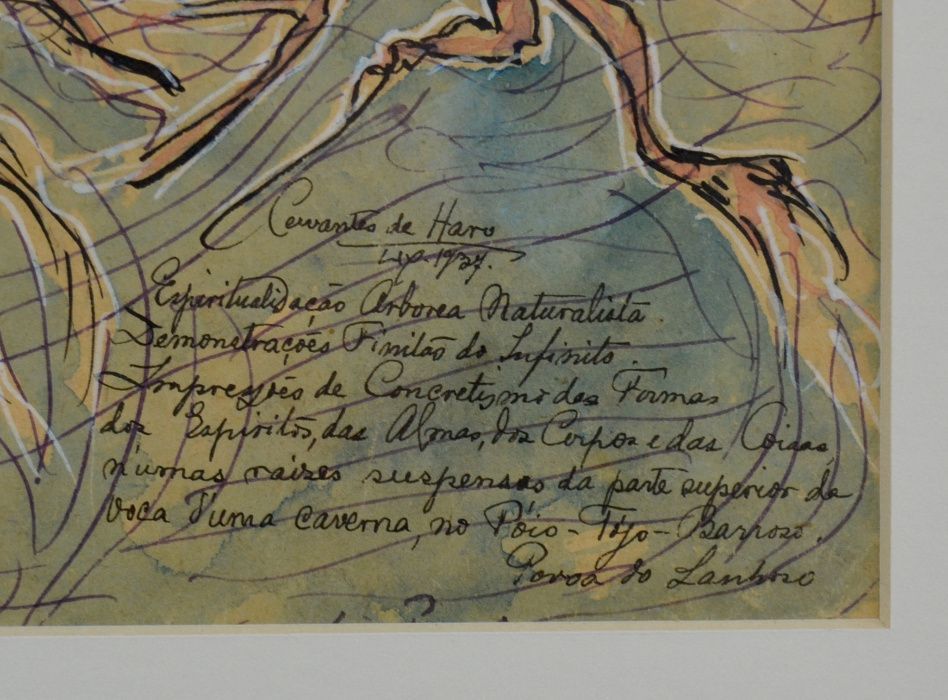 Cervantes de Haro
1937.
Espiritualidação Arborea Naturalista.
Demonstrações Finitas do Infinito.
Impressões de Concretismo das Formas
dos Espiritos, das Almas, dos Corpos e das Coisas,
n'umas raizes suspensas da parte superior da
boca d'uma caverna, no Póio-Tójo-Barroso.
Povoa do Lanhoso